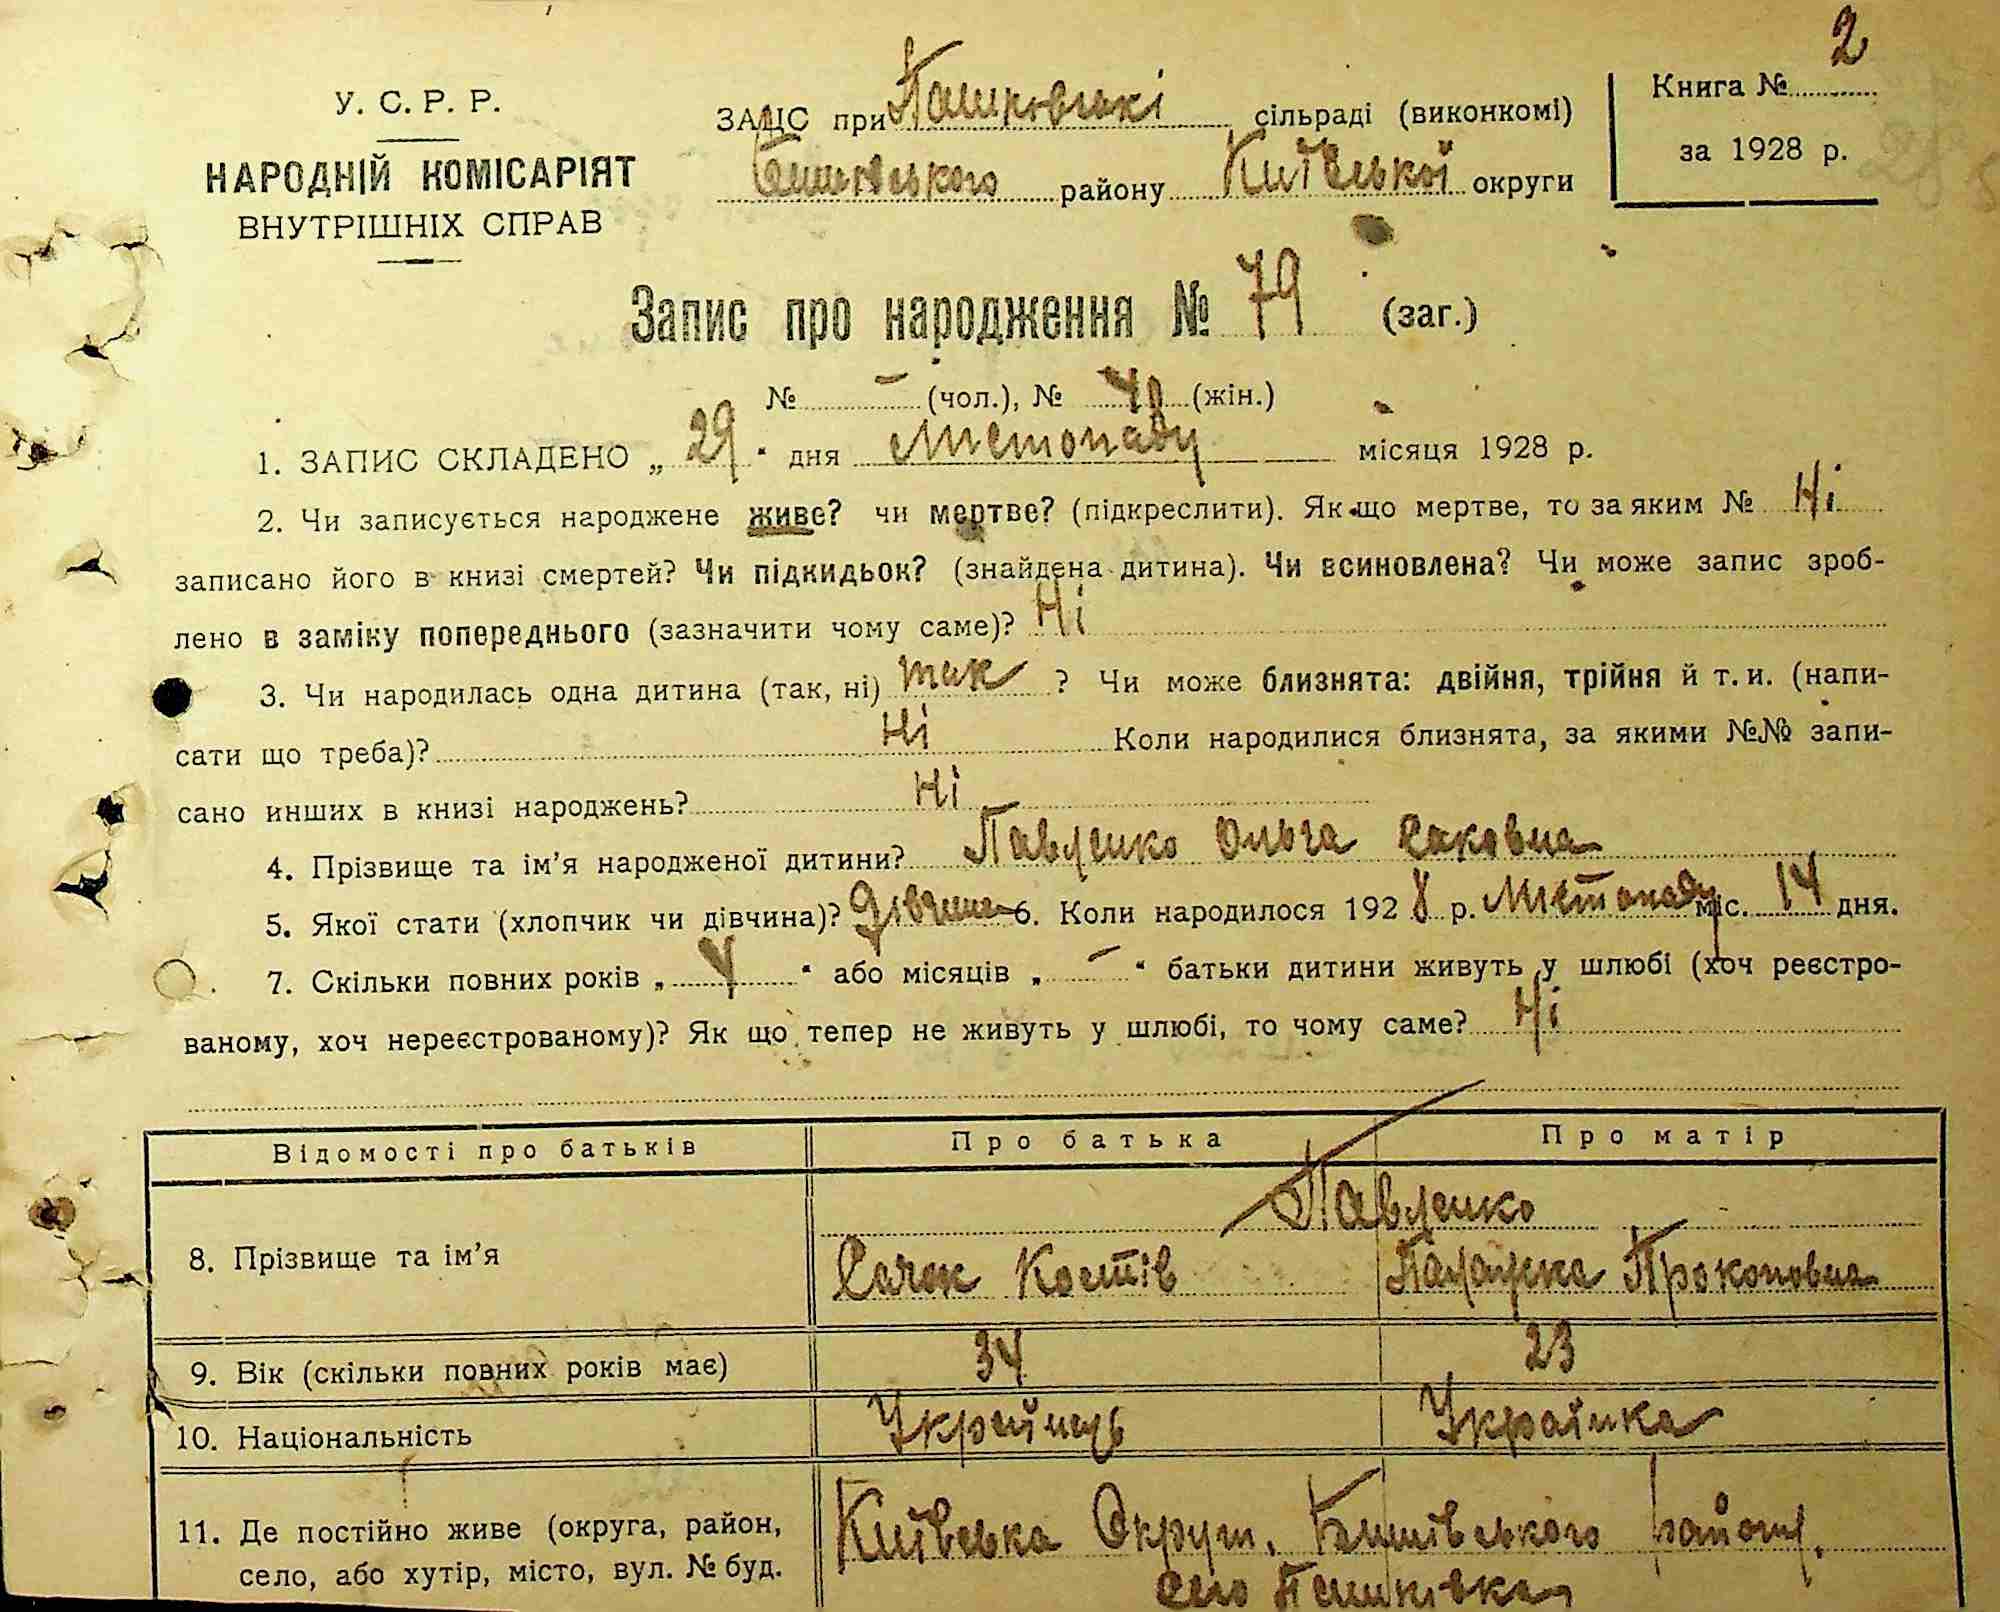 У. С. Р. Р.
НАРОДНІЙ КОМІСАРІЯТ
ВНУТРІШНІХ СПРАВ
ЗАЦС при Пашківські сільраді (виконкомі)
Бишівського району Київської округи
Книга № 2
за 1928 р.
Запис про народження № 79 (заг.)
№ – (чол.), № 40 (жін.)
1. ЗАПИС СКЛАДЕНО „ 29 " дня Листопаду місяця 1928 р.
2. Чи записується народжене живе? чи мертве? (підкреслити). Як що мертве, то за яким № Ні
записано його в книзі смертей? Чи підкидьок? (знайдена дитина). Чи всиновлена? Чи може запис зроб-
лено в заміку попереднього (зазначити чому саме)? Ні
3. Чи народилась одна дитина (так, ні) так ? Чи може близнята: двійня, трійня й т. и. (напи-
сати що треба)? Ні Коли народилися близнята, за якими №№ запи-
сано инших в книзі народжень? Ні
4. Прізвище та ім'я народженої дитини? Павленко Ольга
5. Якої стати (хлопчик чи дівчина)? Дівчина 6. Коли народилося 192 8 р. Листопаду міс. 14 дня.
7. Скільки повних років „ 4 " або місяців „ – " батьки дитини живуть у шлюбі (хоч реєстро-
ваному, хоч нереєстрованому)? Як що тепер не живуть у шлюбі, то чому саме? Ні
Відомості про батьків Про батька Про матір
Павленко
8. Прізвище та ім'я Костів Палажка Прокоповна
9. Вік (скільки повних років має) 34 23
10. Національність Українець Українка
11. Де постійно живе (округа, район, Київська Округа, Бишівського району,
село, або хутір, місто, вул. № буд. село Пашківка